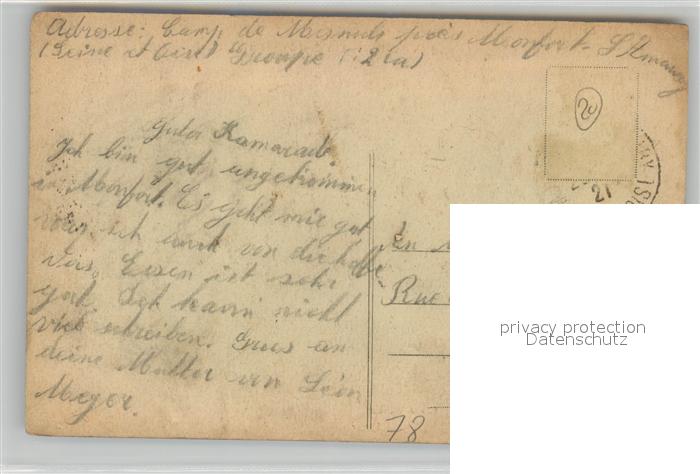 Adresse: Camp de Mesnuls près Monfort-L'Amaury
(Seine et Oise) Groupe
20
Guter Kamarad.
Ich bin gut angekommen
in Monfort. Es geht mir gut
was ich auch von dir hoffe
Das Essen ist sehr
gut. Ich kann nicht
viel schreiben. Grus an
deine Mutter von Léon
Meyer.
21
Rue
78
privacy protection
Datenschutz